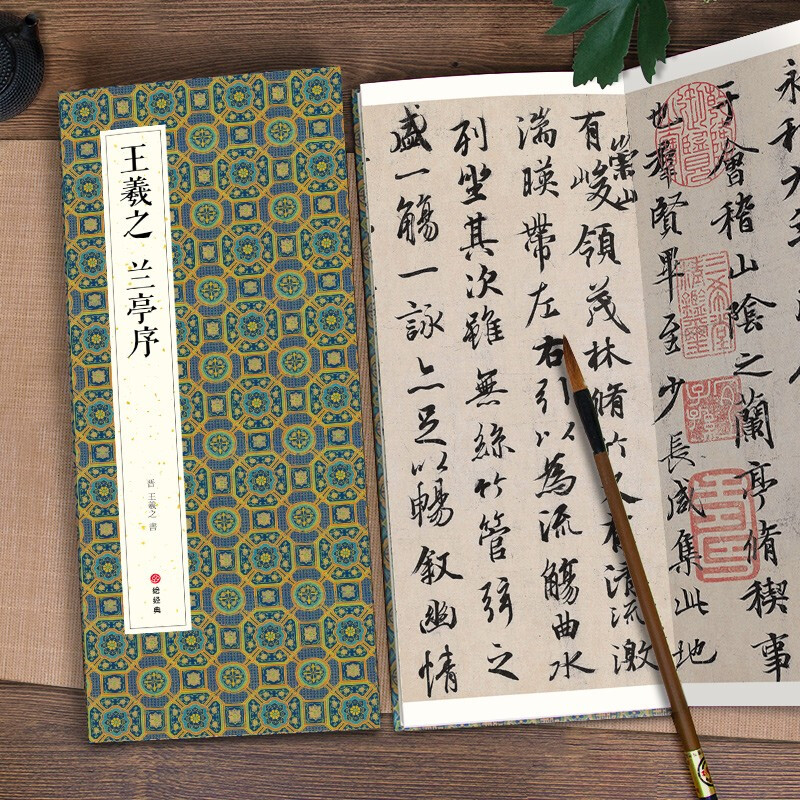 王羲之 兰亭序
晋 王羲之 書
绘经典
永和九
于會稽山陰之蘭亭脩稧事
也羣賢畢至少長咸集此地
有崇山峻領茂林脩竹又有清流激
湍暎帶左右引以為流觴曲水
列坐其次雖無絲竹管弦之
盛一觴一詠亦足以暢叙幽情